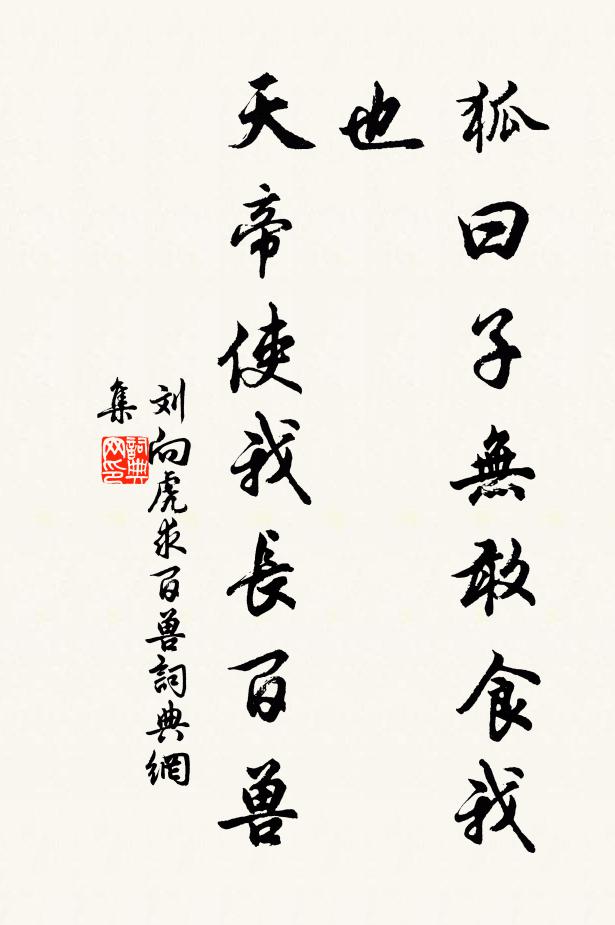 狐曰子無敢食我
也
天帝使我長百兽
刘向虎求百兽詞典網
集
詞典网印